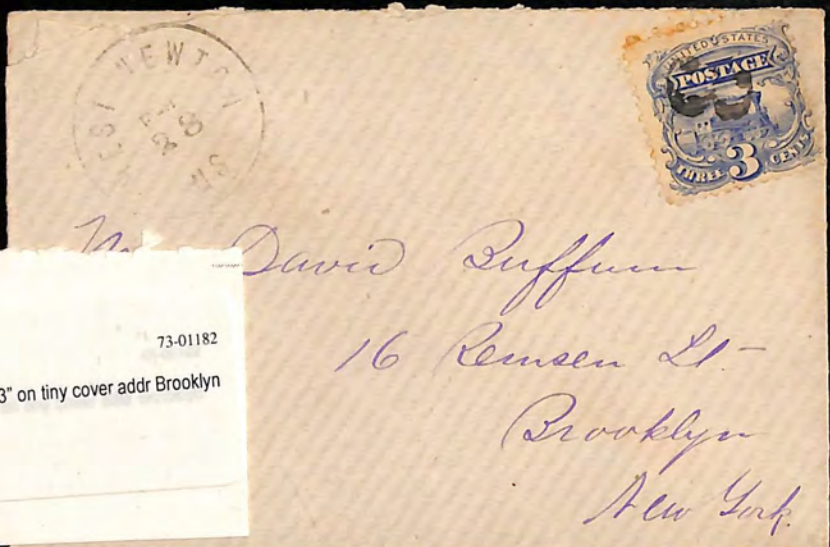 WEST NEWTON
28
MS
UNITED STATES
POSTAGE
THREE 3 CENTS
David Buffum
16 Remsen St-
Brooklyn
New York.
73-01182
3" on tiny cover addr Brooklyn